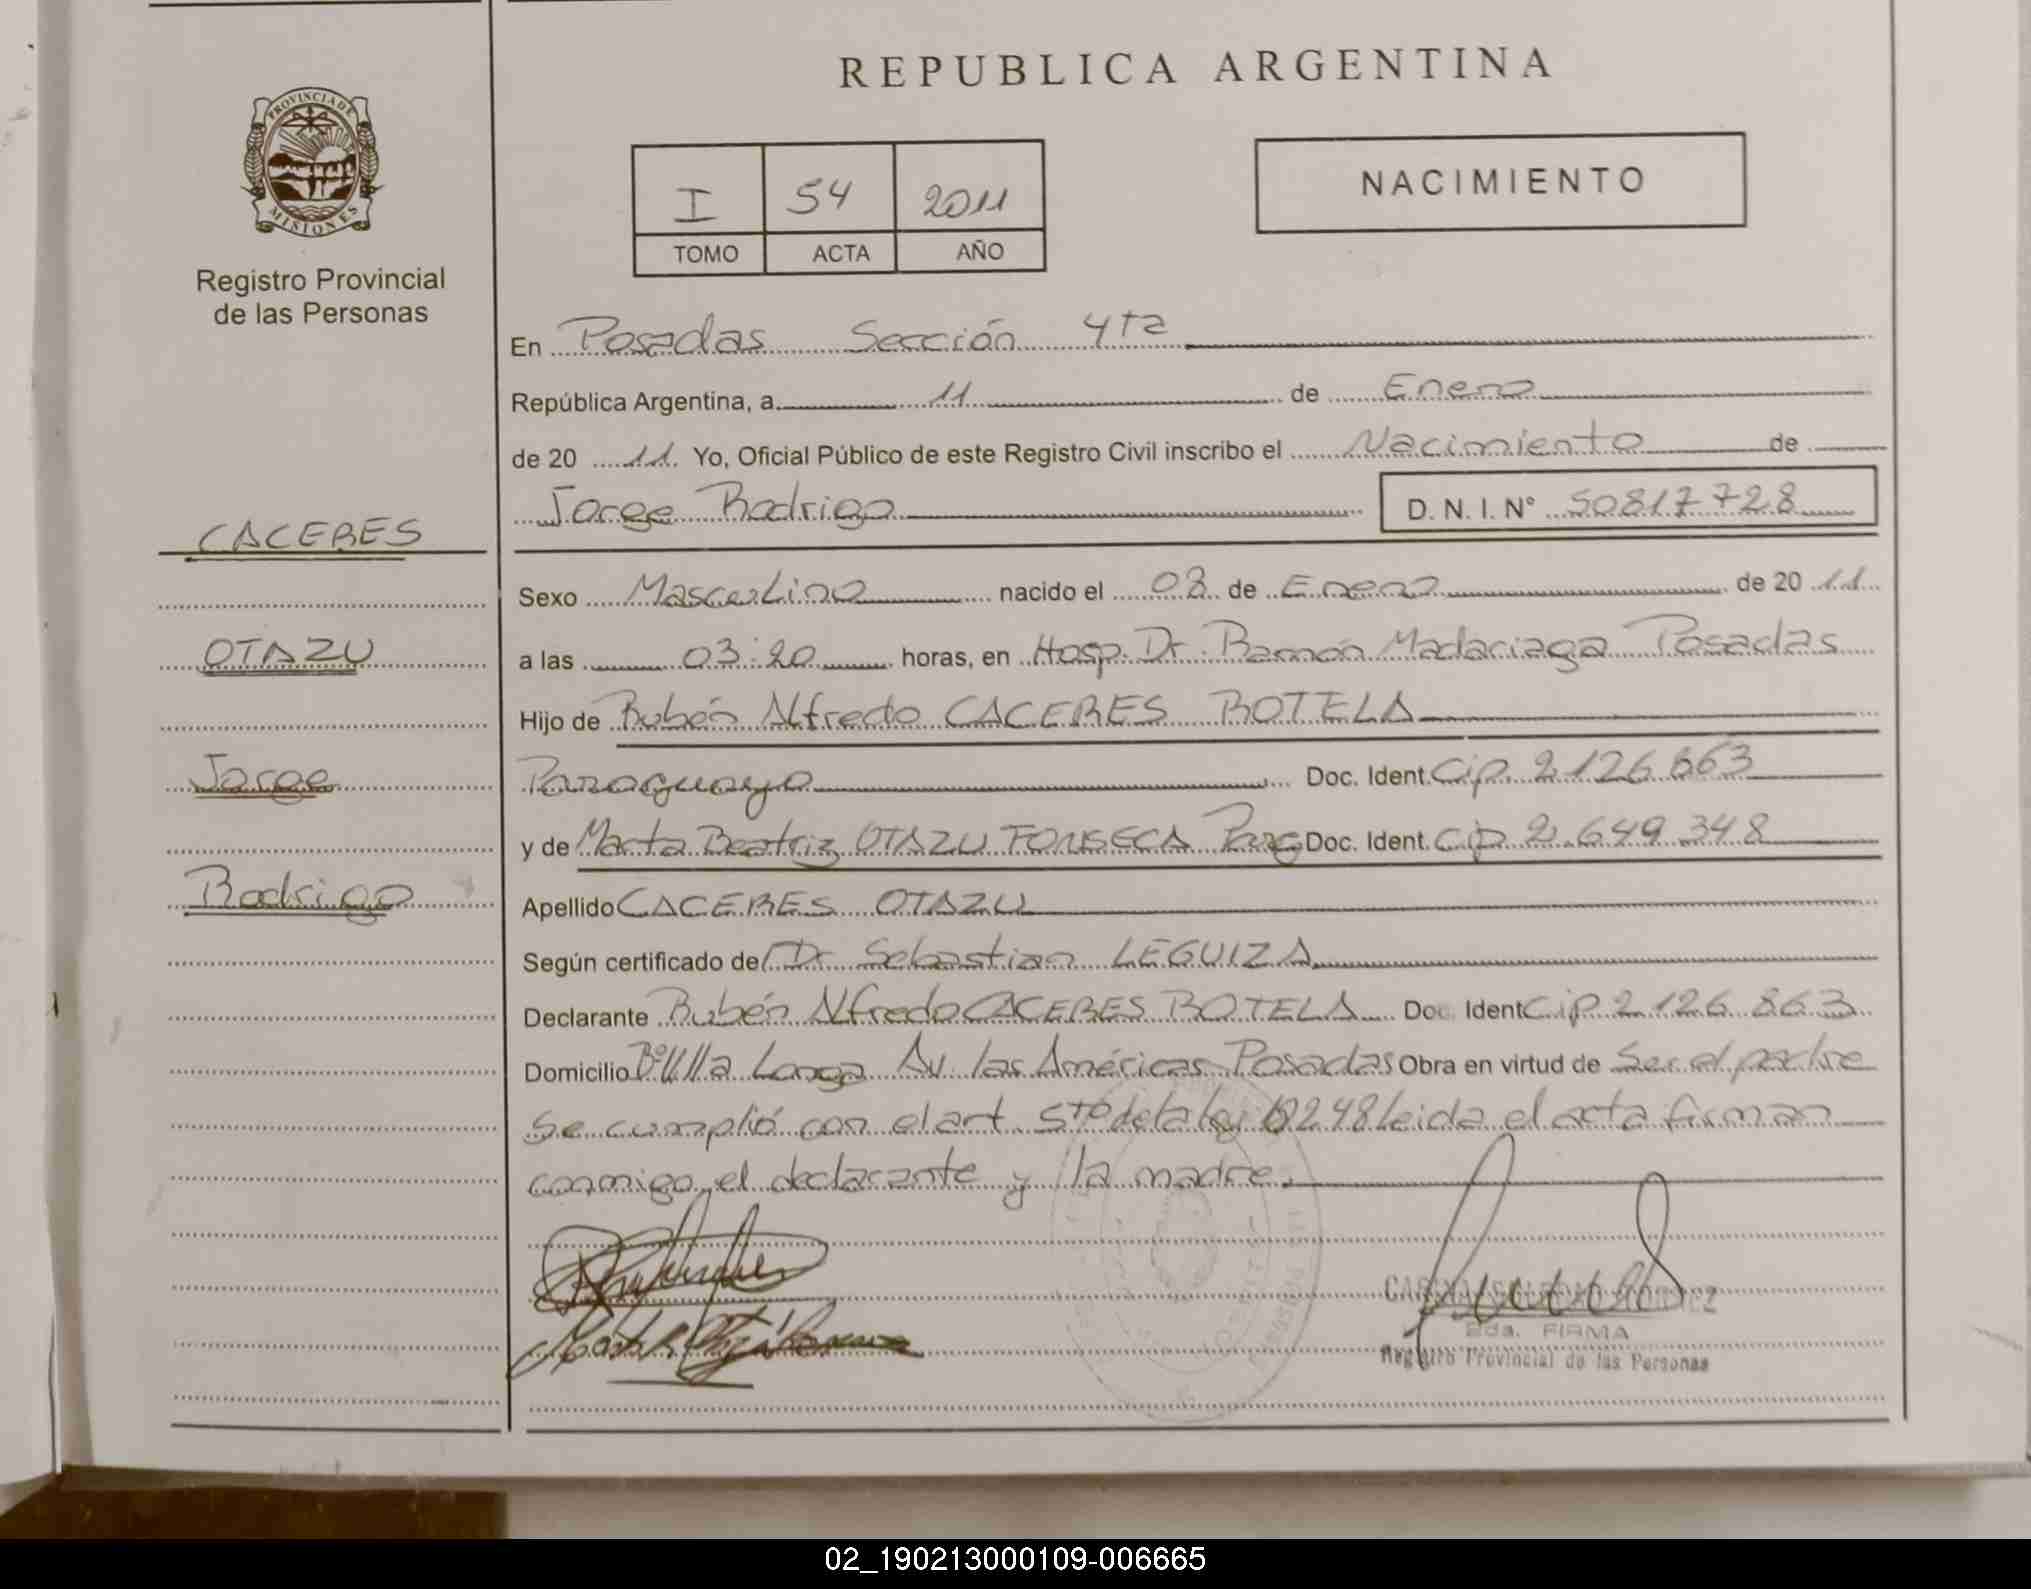 REPUBLICA ARGENTINA
PROVINCIA DE
MISIONES
Registro Provincial
de las Personas
I 54 2011
TOMO ACTA AÑO
NACIMIENTO
En Posadas Sección 4ta
República Argentina, a 11 de Enero
de 20 11 Yo, Oficial Público de este Registro Civil inscribo el Nacimiento de
Jorge Rodrigo D. N. I. N° 50817728
CACERES
OTAZU
Jorge
Rodrigo
Sexo Masculino nacido el 08 de Enero de 20 11
a las 03:20 horas, en Hosp. Dr. Ramón Madariaga Posadas
Hijo de Rubén Alfredo CACERES ROTELA
Paraguayo Doc. Ident. Cip. 2.126.863
y de Marta Beatriz OTAZU FONSECA Parg Doc. Ident. Cip 2.649.348
Apellido CACERES OTAZU
Según certificado de Dr. Sebastian LEGUIZA
Declarante Rubén Alfredo CACERES ROTELA Doc. Ident Cip. 2.126.863
Domicilio B° Villa Longa Av. las Américas Posadas Obra en virtud de Ser el padre
Se cumplió con el art. 5to de la ley 18248 leida el acta firman
conmigo, el declarante y la madre.
2da. FIRMA
Registro Provincial de las Personas
02_190213000109-006665